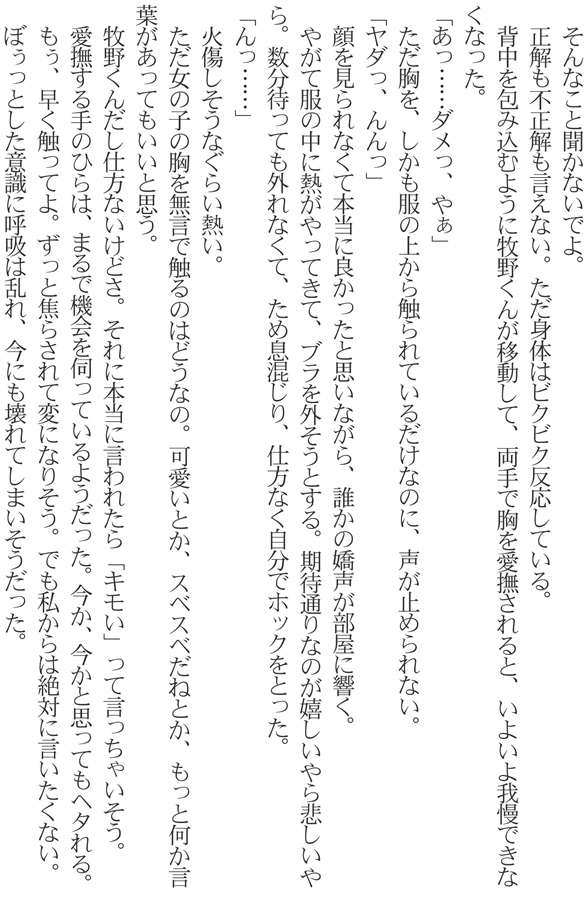 そんなこと聞かないでよ。
正解も不正解も言えない。ただ身体はビクビク反応している。
背中を包み込むように牧野くんが移動して、両手で胸を愛撫されると、いよいよ我慢できな
くなった。
「あっ……ダメっ、やぁ」
ただ胸を、しかも服の上から触られているだけなのに、声が止められない。
「ヤダっ、んんっ」
顔を見られなくて本当に良かったと思いながら、誰かの嬌声が部屋に響く。
やがて服の中に熱がやってきて、ブラを外そうとする。期待通りなのが嬉しいやら悲しいや
ら。数分待っても外れなくて、ため息混じり、仕方なく自分でホックをとった。
「んっ……」
火傷しそうなぐらい熱い。
ただ女の子の胸を無言で触るのはどうなの。可愛いとか、スベスベだねとか、もっと何か言
葉があってもいいと思う。
牧野くんだし仕方ないけどさ。それに本当に言われたら「キモい」って言っちゃいそう。
愛撫する手のひらは、まるで機会を伺っているようだった。今か、今かと思ってもヘタれる。
もぅ、早く触ってよ。ずっと焦らされて変になりそう。でも私からは絶対に言いたくない。
ぼぅっとした意識に呼吸は乱れ、今にも壊れてしまいそうだった。